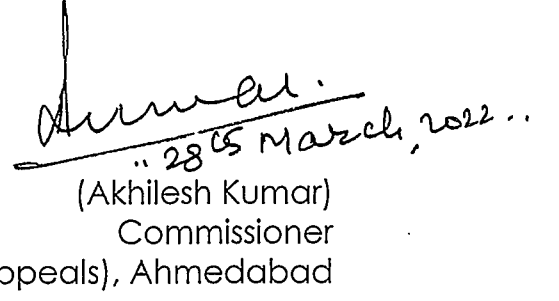 28th March, 2022..
(Akhilesh Kumar)
Commissioner
ppeals), Ahmedabad